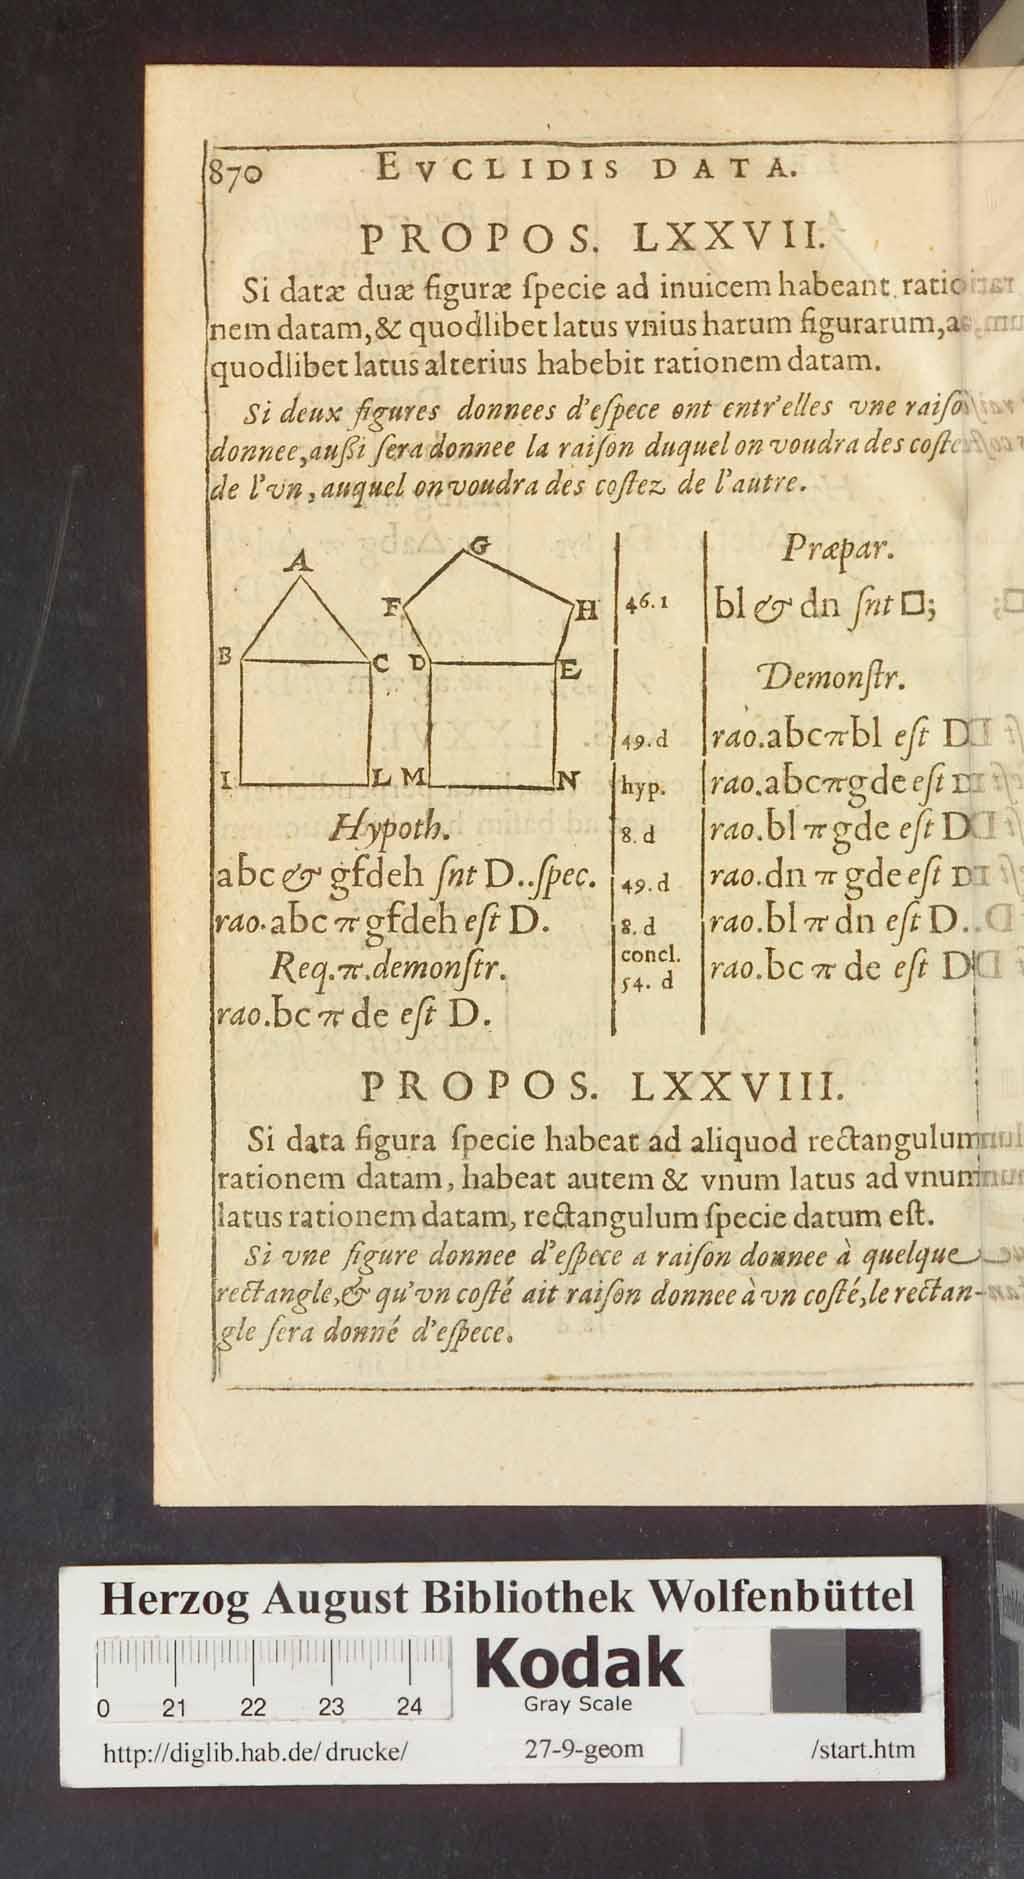 870 EVCLIDIS DATA.
PROPOS. LXXVII.
Si datæ duæ figuræ ſpecie ad inuicem habeant ratio
nem datam, & quodlibet latus vnius harum figurarum, a
quodlibet latus alterius habebit rationem datam.
Si deux figures donnees d'eſpece ont entr'elles vne raiſo
donnee, auſſi ſera donnee la raiſon duquel on voudra des coſte
de l'vn, auquel on voudra des coſtez de l'autre.
A
G
F
H
B
C
D
E
I
L
M
N
Hypoth.
abc & gfdeh ſnt D..ſpec.
rao.abc π gfdeh eſt D.
Req.π.demonſtr.
rao.bc π de eſt D.
Præpar.
46.1 bl & dn ſnt □;
Demonſtr.
49.d rao.abc π bl eſt D
hyp. rao.abc π gde eſt D
8.d rao.bl π gde eſt D
49.d rao.dn π gde eſt D
8.d rao.bl π dn eſt D.
concl.
54. d rao.bc π de eſt D
PROPOS. LXXVIII.
Si data figura ſpecie habeat ad aliquod rectangulum
rationem datam, habeat autem & vnum latus ad vnum
latus rationem datam, rectangulum ſpecie datum eſt.
Si vne figure donnee d'eſpece a raiſon donnee à quelque
rectangle, & qu'vn coſté ait raiſon donnee à vn coſté, le rectan-
gle ſera donné d'eſpece.
Herzog August Bibliothek Wolfenbüttel
0 21 22 23 24
Kodak
Gray Scale
http://diglib.hab.de/drucke/ 27-9-geom /start.htm